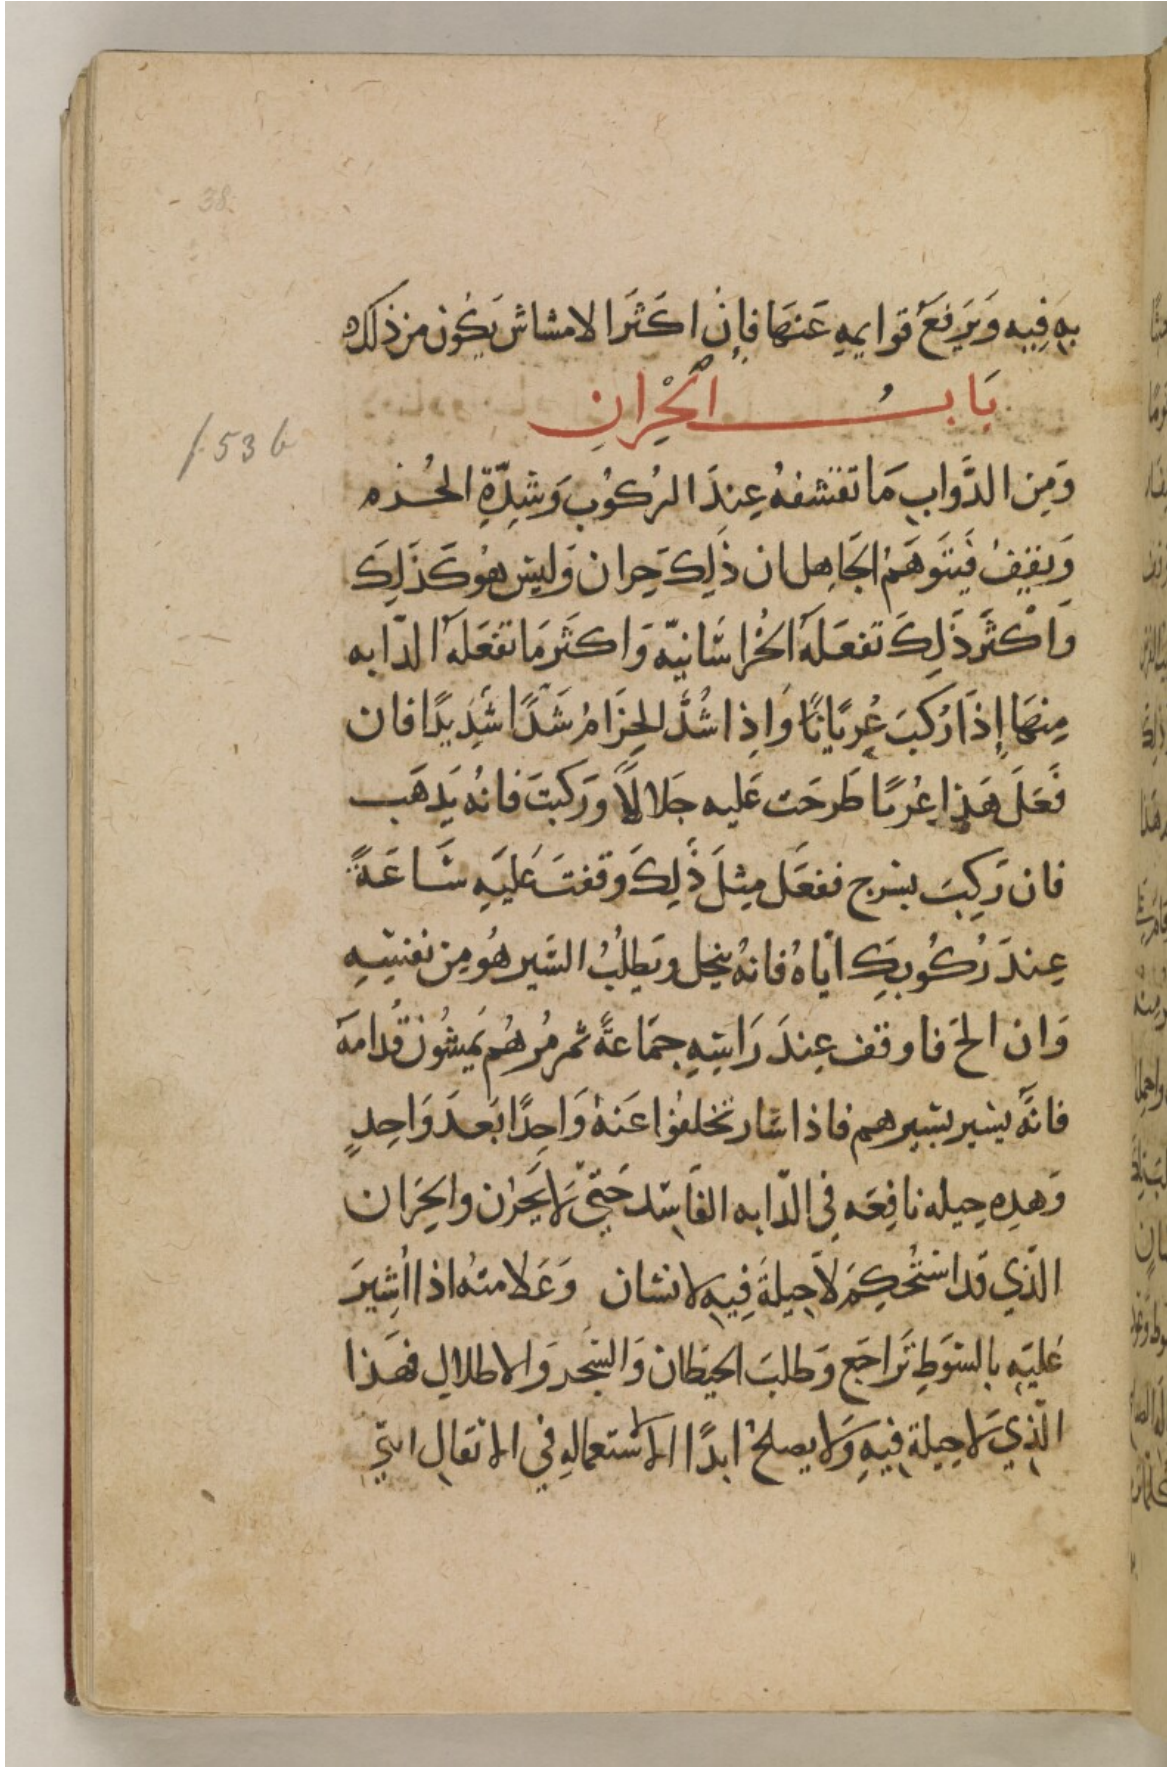 38
به فِيه وَيَرفعَ قوايمِهِ عَنهَا فإنْ اكَثَر الامشاش يَكُون من ذلك
بَابُ الحِرانِ
f. 53 b
وَمِن الدَّوابِ مَا تفشفهُ عِندَ الرُكوُب وَشِدِّةِ الحُذم
وَيقِفُ فَيتَوَهَمُ الجَاهِل ان ذَلِكَ حِران وَليسَ هُو كَذَلِكَ
وَاكْثَر ذَلِكَ تفعَلهَ الخُراسَانيّه وَاكثَر مَا تفعَلهَ الدّابه
مِنهَا إِذَا رُكبَ عُريَانًا وَاِذا شُدَّ الحِزَامُ شَدًّا شَدِيدًا فان
فَعَلَ هَذا عُريًا طَرحَت عَليه جَلالاً وَرَكبتَ فانهُ يَذهَب
فان رَكِبتَ بسَرج ففعَل مِثلَ ذَلِكَ وَقفتَ عَليَهِ سَاعَةً
عِندَ رُكُوبكَ ايّاهُ فانهُ ينحِل وَيَطلبُ السَير هُو مِن نفسِهِ
وَان الحَ فاوقف عِندَ رَاسِهِ جَمَاعةً ثم مُرهُم يَمشُون قُدامهَ
فانَّه يسَير بسَيرهم فاذا سَار تخلفوُا عَنهُ وَاحِدًا بَعدَ وَاحِدٍ
وَهذِه حِيله نافِعَه فِي الدّابه الفَاسِد حَتيّ لاَ يَحرُن وَالحِرَان
الذّي قد استُحكِمَ لاَ حِيلةَ فِيهِ لانسَان وَعَلامتهُ اذا اُشِيرَ
عَليَهِ بالسَوَطِ تَراجَع وَطلبَ الحِيطَان وَالشَجر وَالاطلالِ فهَذا
الذّي لاَ حِيلة فِيهِ وَلاَ يصلحُ ابدًا الاستعمالهِ في الاثقال التي